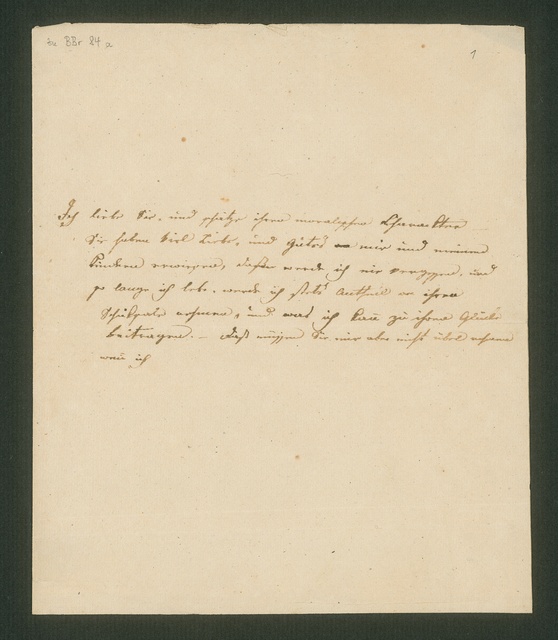 zu BBr 84 a
1
Ich liebe Sie, und schätze ihren moralischen Charakter
Sie haben viel Liebe, und Gutes mir und meinen
Kindern erwiesen, dafür werde ich nie vergessen, und
so lange ich lebe, werde ich stets Antheil an ihren
Schiksale nehmen, und was ich kan zu ihren Glücke
beitragen. — Doch müssen Sie mir aber nicht übel nehmen
wen ich